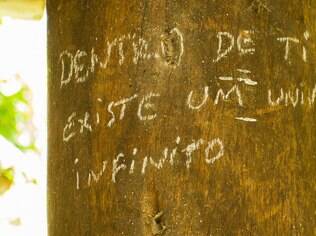 DENTRO DE TI
EXISTE UM UNIV
INFINITO